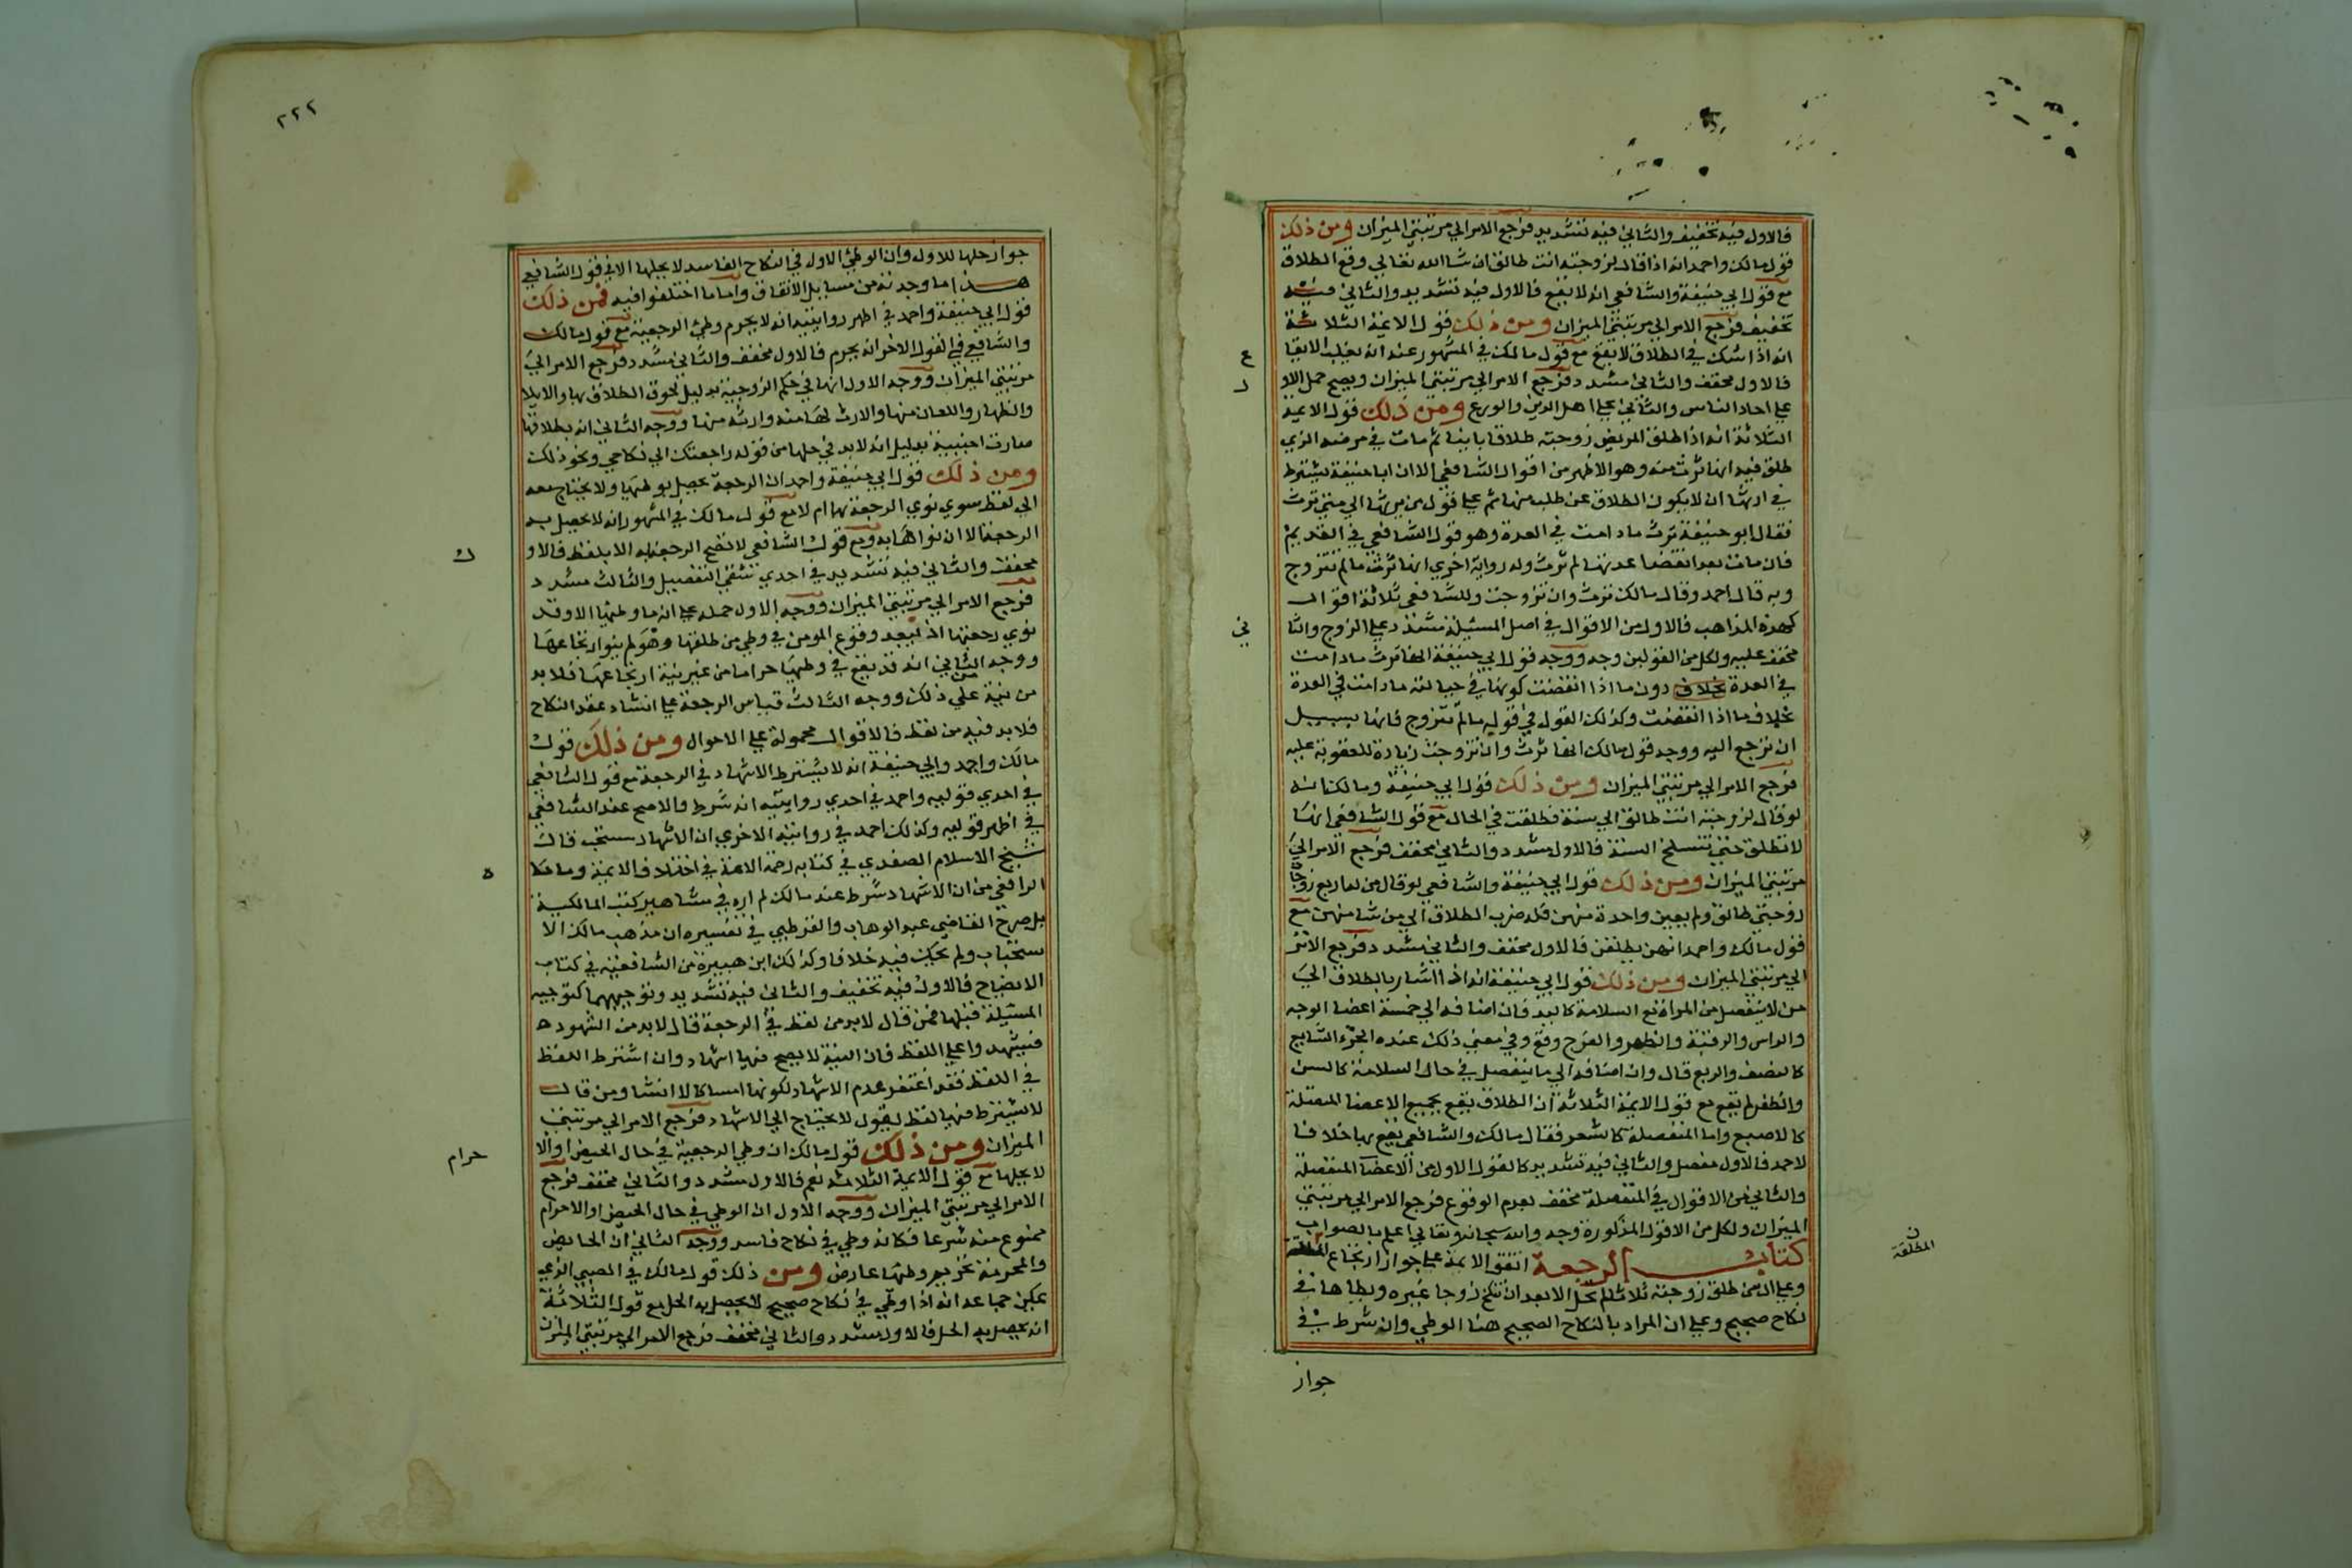 فالاول فيه تخفيف والثاني فيه تشديد فرجع الامر الي مرتبتي الميزان ومن ذلك
قول مالك واحمد انه اذا قال لزوجته انت طالق ان شا الله تعالي وقع الطلاق
مع قول ابي حنيفة والشافعي انه لا يقع فالاول فيه تشديد والثاني فيه
تخفيف فرجع الامر الي مرتبتي الميزان ومن ذلك قول الايمة الثلاثة
انه اذا شك في الطلاق لا يقع مع قول مالك في المشهور عنه انه يغلب الايقا
ع
فالاول مخفف والثاني مشدد فرجع الامر الي مرتبتي الميزان ويصح حمل الاو
ل
علي احاد الناس والثاني علي اهل الدين والورع ومن ذلك قول الايمة
الثلاثة انه اذا طلق المريض زوجته طلاقا باينا ثم مات في مرضه الذي
طلق فيه انها ترث منه وهو الاظهر من اقوال الشافعي الا ان ابا حنيفة يشترط
في ارثها ان لا يكون الطلاق عن طلب منها ثم علي قول من يرثها الي متي ترث
فقال ابو حنيفة ترث ما دامت في العدة وهو قول الشافعي في القديم
فان مات بعد انقضا عدتها لم ترث وله رواية اخري انها ترث ما لم تتزوج
وبه قال احمد وقال مالك ترث وان تزوجت وللشافعي ثلاثة اقوال
كهذه المذاهب فالاول من الاقوال في اصل المسئيلة مشدد علي الزوج والثا
ني
مخفف عليه ولكل من القولين وجه ووجه قول ابي حنيفة انها ترث ما دامت
في العدة بخلاف دون ما اذا انقضت كونها في حبالته ما دامت في العدة
بخلاف ما اذا انقضت وكذلك القول في قوله ما لم تتزوج فانها بسبيل
ان ترجع اليه ووجه قول مالك انها ترث وان تزوجت زيادة للعقوبة عليه
فرجع الامر الي مرتبتي الميزان ومن ذلك قول ابي حنيفة ومالك انه
لو قال لزوجته انت طالق الي سنة طلقت في الحال مع قول الشافعي انها
لا تطلق حتي تنسلخ السنة فالاول مشدد والثاني مخفف فرجع الامر الي
مرتبتي الميزان ومن ذلك قول ابي حنيفة والشافعي لو قال من له اربع زوجات
زوجتي طالق ولم يعين واحدة منهن فله ضرب الطلاق الي من شا منهن مع
قول مالك واحمد انهن يطلقن فالاول مخفف والثاني مشدد فرجع الامر
الي مرتبتي الميزان ومن ذلك قول ابي حنيفة انه اذا اشار بالطلاق الي
من لا ينفصل من المراة مع السلامة كاليد فان اضافه الي خمسة اعضا الوجه
والراس والرقبة والظهر والفرج وقع وفي معني ذلك عنده الجزء الشايع
كالنصف والربع قال وان اضافه الي ما ينفصل في حال السلامة كالسن
والظفر لم يقع مع قول الايمة الثلاثة ان الطلاق يقع بجميع الاعضا المتصلة
كالاصبع واما المنفصلة كالشعر فقال مالك والشافعي يقع بها خلافا
لاحمد فالاول مفصل والثاني فيه تشديد كالقول الاول من الاعضا المنفصلة
والثاني من الاقوال في المنفصلة مخفف بعدم الوقوع فرجع الامر الي مرتبتي
الميزان ولكل من الاقوال المذكورة وجه والله سبحانه وتعالي اعلم بالصواب
كتاب الرجعة اتفق الايمة علي جواز ارتجاع
المطلقة
وعلي ان من طلق زوجته ثلاثا لم تحل الا بعد ان تنكح زوجا غيره ويطاها في
نكاح صحيح وعلي ان المراد بالنكاح الصحيح هنا الوطي وان شرط في
جواز
٢٢٢
جواز حلها للاول وان الوطئ الاول في النكاح الفاسد لا يحلها الا في قول الشافعي
هذا ما وجدته من مسايل الاتفاق واما ما اختلفوا فيه فمن ذلك
قول ابي حنيفة واحمد في اظهر روايتيه انه لا يحرم وطئ الرجعية مع قول مالك
والشافعي في القول الاخر انه يحرم فالاول مخفف والثاني مشدد فرجع الامر الي
مرتبتي الميزان ووجه الاول انها في حكم الزوجية بدليل لحوق الطلاق بها والايلا
والظهار واللعان منها والارث لها منه وارثه منها ووجه الثاني انه بطلاقها
صارت اجنبية بدليل انه لا بد في حلها من قوله راجعتك الي نكاحي ونحو ذلك
ومن ذلك قول ابي حنيفة واحمد ان الرجعة تحصل بوطئها ولا يحتاج معه
الي لفظ سوي نوي الرجعة بها ام لا مع قول مالك في المشهور انه لا يحصل به
الرجعة الا ان نواها به ومع قول الشافعي لا تصح الرجعة الا بلفظ فالاو
ل
مخفف والثاني فيه تشديد في احدي شقي التفصيل والثالث مشدد
فرجع الامر الي مرتبتي الميزان ووجه الاول حمله علي انه ما وطئها الا وقد
نوي رجعتها اذ يبعد وقوع المومن في وطي من طلقها وهو لم ينو ارتجاعها
ووجه الثاني انه قد يقع في وطئها حراما من غير نية ارتجاعها فلا بد
من نية علي ذلك ووجه الثالث قياس الرجعة علي انشاء عقد النكاح
فلا بد فيه من لفظ فالاقوال محمولة علي الاحوال ومن ذلك قول
مالك واحمد وابي حنيفة انه لا يشترط الاشهاد في الرجعة مع قول الشافعي
في احدي قوليه واحمد في احدي روايتيه انه شرط والاصح عند الشافعي
في اظهر قوليه وكذلك احمد في روايته الاخري ان الاشهاد مستحب قال
شيخ الاسلام الصفدي في كتابه رحمة الامة في اختلاف الايمة وما حكا
ه
الرافعي من ان الاشهاد شرط عند مالك لم اره في مشاهير كتب المالكية
بل صرح القاضي عبد الوهاب والقرطبي في تفسيره ان مذهب مالك الا
ستحباب ولم يحك فيه خلافا وكذلك ابن هبيرة من الشافعية في كتاب
الايضاح فالاول فيه تخفيف والثاني فيه تشديد وتوجيههما كتوجيه
المسئيلة قبلها فمن قال لا بد من لفظ في الرجعة قال لا بد من الشهود
فيشهدوا علي اللفظ فان النية لا يصح فيها اشهاد وان اشترط اللفظ
في اللفظ فقد اغتفر عدم الاشهاد لكونها امساكا لا انشا ومن قال
لا يشترط فيها لفظ يقول لا يحتاج الي الاشهاد فرجع الامر الي مرتبتي
الميزان ومن ذلك قول مالك ان وطي الرجعية في حال الحيض او الا
حرام
لا يحلها مع قول الايمة الثلاثة نعم فالاول مشدد والثاني مخفف فرجع
الامر الي مرتبتي الميزان ووجه الاول ان الوطي في حال الحيض او الاحرام
ممنوع منه شرعا فكانه وطي في نكاح فاسد ووجه الثاني ان الحايض
والمحرمة تحريم وطئها عارض ومن ذلك قول مالك في الصبي الذي
يمكن جماعه انه اذا وطي في نكاح صحيح لا يحصل به الحل مع قول الثلاثة
انه يحصل به الحل فالاول مشدد والثاني مخفف فرجع الامر الي مرتبتي الميزان